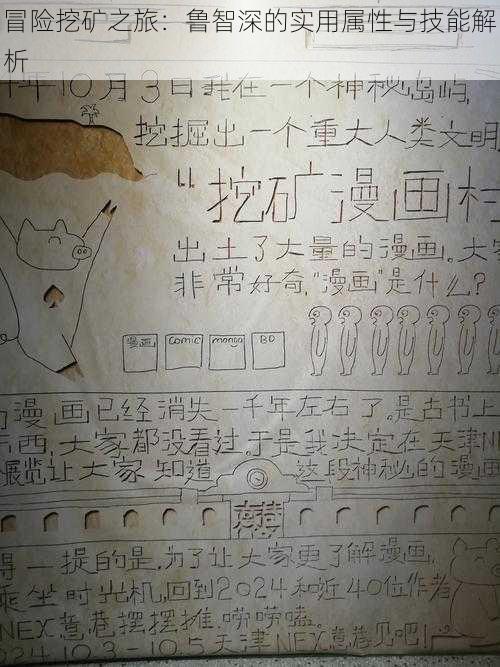 冒险挖矿之旅：鲁智深的实用属性与技能解
析
年10月3日我在一个神秘岛屿,
挖掘出一个重大人类文明
“挖矿漫画村
出土了大量的漫画.大家
非常好奇,“漫画”是什么?
漫画 comic manga BD
漫画已经消失一千年左右了.是古书上
东西,大家都没看过.于是我决定在天津NE
展览让大家知道 这段神秘的漫画
得一提的是,为了让大家更了解漫画,
乘坐时光机,回到2024和近40位作者
NEX薏巷摆摆摊,唠唠嗑。
2024 10.3-10.5天津NEX薏巷见吧!